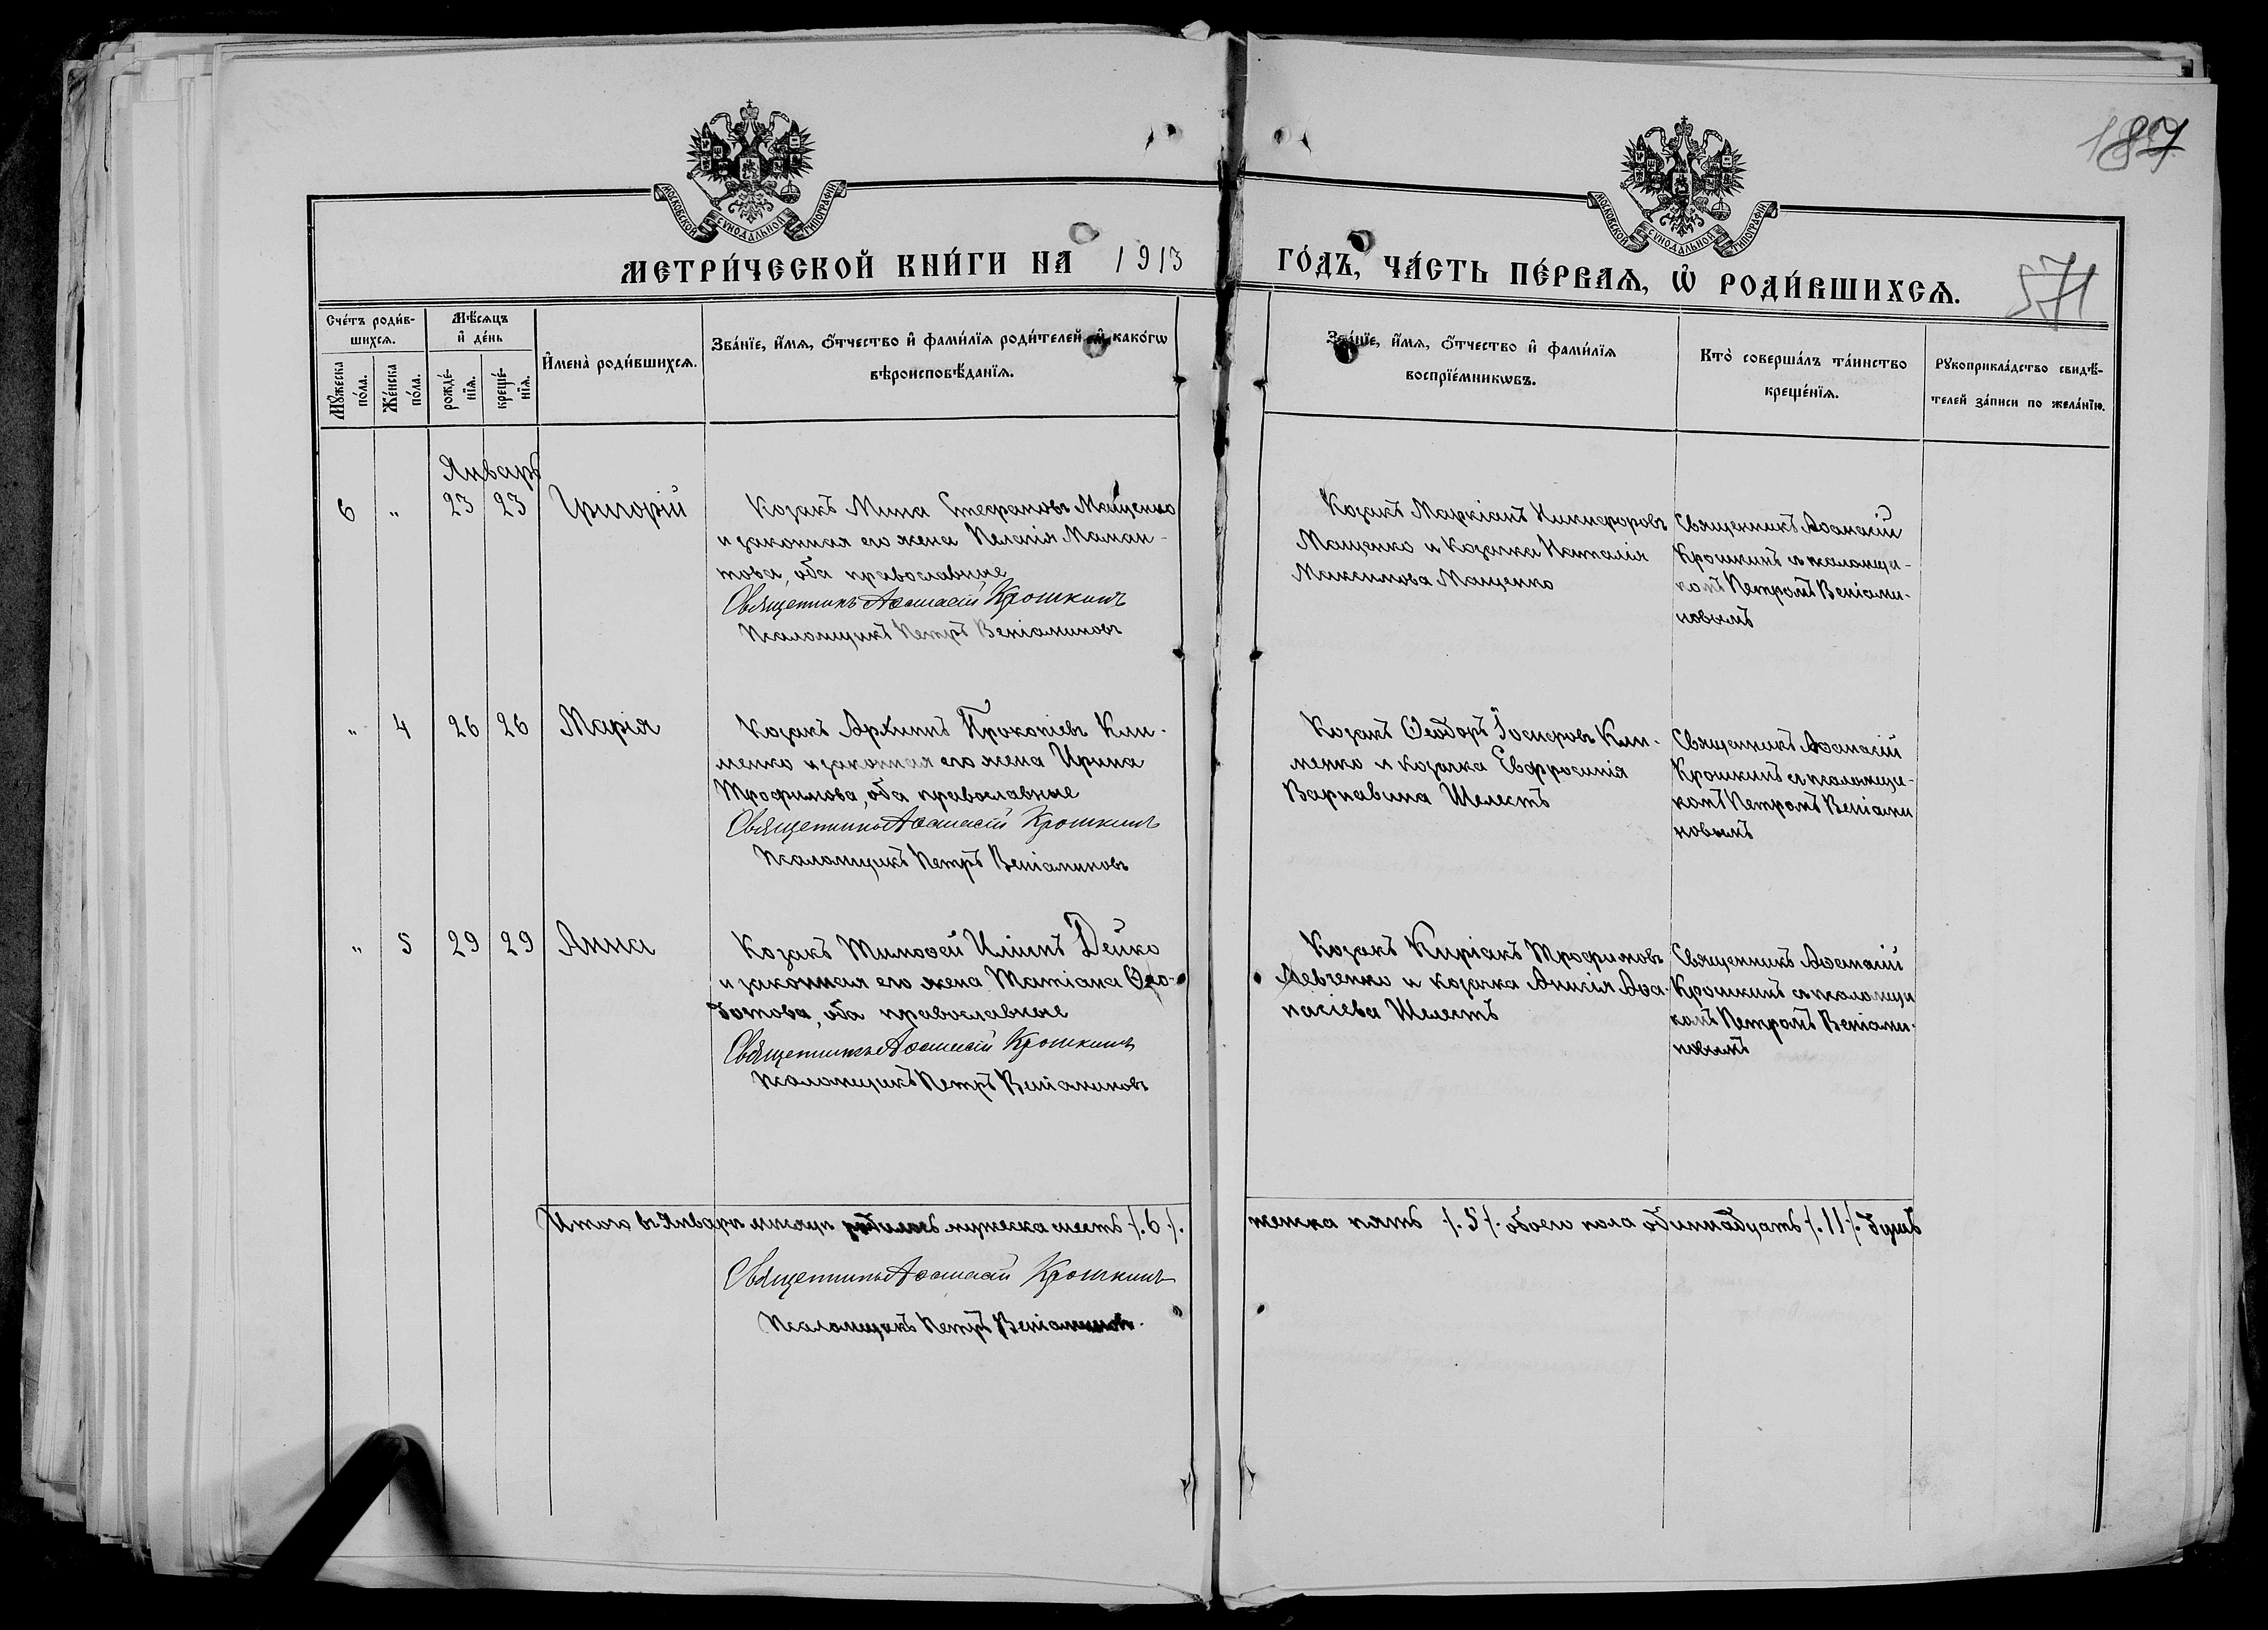 187
МОСКОВСКОЙ СѴНОДАЛЬНОЙ ТИПОГРАФІИ
МОСКОВСКОЙ СѴНОДАЛЬНОЙ ТИПОГРАФІИ
МЕТРИ́ЧЕСКОЙ КНИ́ГИ НА 1913 ГО́ДЪ, ЧА́СТЬ ПЕ́РВАѦ, Ѡ РОДИ́ВШИХСѦ.
571
Сче́тъ роди́в-
шихсѧ.
Мꙋ́жеска
по́ла.
Же́нска
по́ла.
Мѣ́сѧцъ
и де́нь
рожде́-
нїѧ.
креще́-
нїѧ.
Имена̀ роди́вшихсѧ.
Зва́нїе, и́мѧ, ѻ́тчество и фами́лїѧ роди́телей и како́гѡ
вѣроисповѣ́данїѧ.
Зва́нїе, и́мѧ, ѻ́тчество и фами́лїѧ
воспрїе́мникѡвъ.
Кто̀ соверша́лъ та́инство
креще́нїѧ.
Рꙋкоприкла́дство свидѣ́-
телей за́писи по жела́нїю.
Январь
6 " 23 23 Григорій
Козакъ Мина Стефановъ Мащенко
и законная его жена Пелагія Маман-
това, оба православные
Священникъ Аѳанасій Крошкинъ
Псаломщикъ Петръ Веніаминовъ
Козакъ Маркіанъ Никифоровъ
Мащенко и козачка Наталія
Максимова Мащенко
Священникъ Аѳанасій
Крошкинъ съ псаломщи-
комъ Петромъ Веніами-
новымъ
" 4 26 26 Марія
Козакъ Архипъ Прокопіевъ Кли-
менко и законная его жена Ирина
Трофимова, оба православные
Священникъ Аѳанасій Крошкинъ
Псаломщикъ Петръ Веніаминовъ
Козакъ Ѳеодоръ Іосифовъ Кли-
менко и козачка Евфросинія
Варнавина Шелестъ
Священникъ Аѳанасій
Крошкинъ съ псаломщи-
комъ Петромъ Веніами
новымъ
" 5 29 29 Анна
Козакъ Тимоѳей Иліинъ Дейко
и законная его жена Татіана Ѳео-
дотова, оба православные
Священникъ Аѳанасій Крошкинъ
Псаломщикъ Петръ Веніаминовъ
Козакъ Киріакъ Трофимовъ
Левченко и козачка Анисія Аѳа-
насіева Шелестъ
Священникъ Аѳанасій
Крошкинъ съ псаломщи
комъ Петромъ Веніами-
новымъ
Итого въ Январѣ мѣсяцѣ родилось мужеска шесть /.6/. женска пять /.5/. обоего пола одиннадцать /.11/. душъ
Священникъ Аѳанасій Крошкинъ
Псаломщикъ Петръ Веніаминовъ.